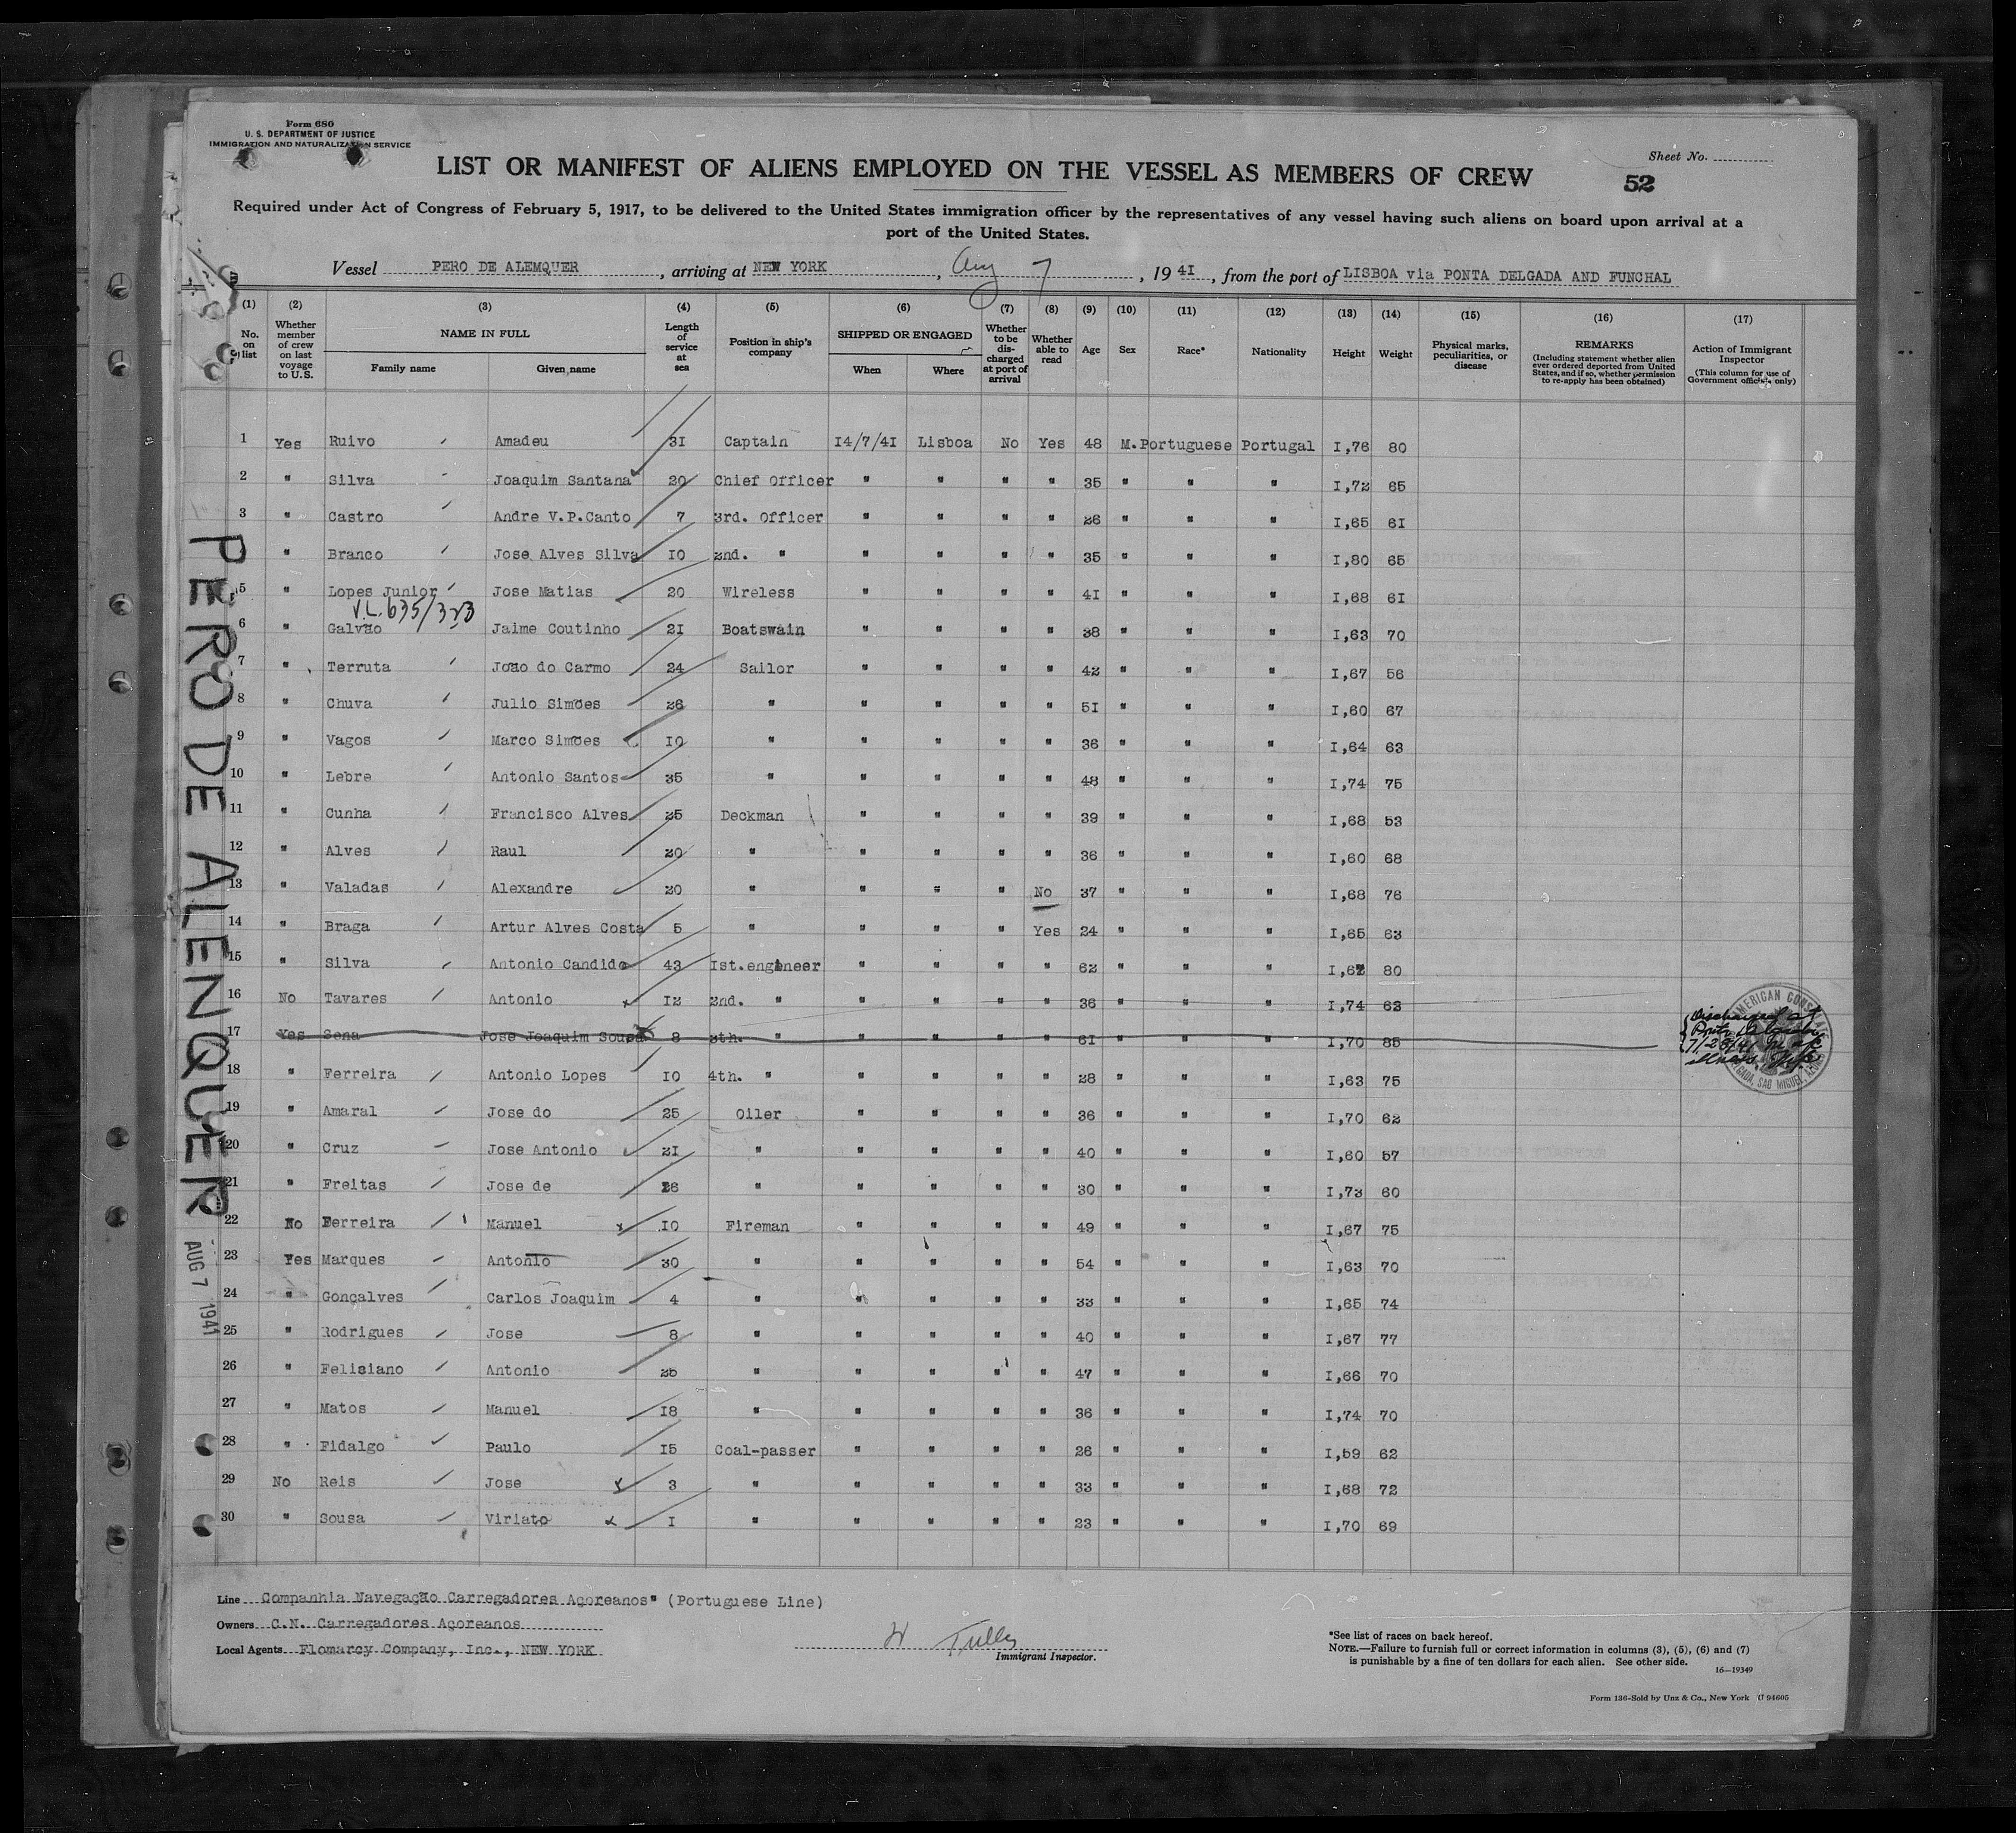 Form 680
U. S. DEPARTMENT OF JUSTICE
IMMIGRATION AND NATURALIZATION SERVICE
Sheet No.
LIST OR MANIFEST OF ALIENS EMPLOYED ON THE VESSEL AS MEMBERS OF CREW
52
Required under Act of Congress of February 5, 1917, to be delivered to the United States immigration officer by the representatives of any vessel having such aliens on board upon arrival at a
port of the United States.
Vessel PERO DE ALEMQUER, arriving at NEW YORK, Aug 7, 19 41, from the port of LISBOA via PONTA DELGADA AND FUNCHAL
(1) (2) (3) (4) (5) (6) (7) (8) (9) (10) (11) (12) (13) (14) (15) (16) (17)
No. on list
Whether member of crew on last voyage to U.S.
NAME IN FULL
Family name
Given name
Length of service at sea
Position in ship's company
SHIPPED OR ENGAGED
When
Where
Whether to be discharged at port of arrival
Whether able to read
Age
Sex
Race*
Nationality
Height
Weight
Physical marks, peculiarities, or disease
REMARKS
(Including statement whether alien ever ordered deported from United States, and if so, whether permission to re-apply has been obtained)
Action of Immigrant Inspector
(This column for use of Government officials only)
1 Yes Ruivo Amadeu 31 Captain 14/7/41 Lisboa No Yes 48 M. Portuguese Portugal 1,76 80
2 " Silva Joaquim Santana 20 Chief Officer " " " " 35 " " " 1,72 65
3 " Castro Andre V.P.Canto 7 3rd. Officer " " " " 26 " " " 1,65 61
" Branco Jose Alves Silva 10 2nd. " " " " " 35 " " " 1,80 65
5 " Lopes Junior Jose Matias 20 Wireless " " " " 41 " " " 1,68 61
V.L. 635/323
6 " Galvão Jaime Coutinho 21 Boatswain " " " " 38 " " " 1,63 70
7 " Terruta João do Carmo 24 Sailor " " " " 42 " " " 1,67 56
8 " Chuva Julio Simões 26 " " " " " 51 " " " 1,60 67
9 " Vagos Marco Simões 10 " " " " " 36 " " " 1,64 63
10 " Lebre Antonio Santos 35 " " " " " 48 " " " 1,74 75
11 " Cunha Francisco Alves 25 Deckman " " " " 39 " " " 1,68 53
12 " Alves Raul 20 " " " " " 36 " " " 1,60 68
13 " Valadas Alexandre 20 " " " " No 37 " " " 1,68 76
14 " Braga Artur Alves Costa 5 " " " " Yes 24 " " " 1,65 63
15 " Silva Antonio Candido 43 1st.engineer " " " " 62 " " " 1,62 80
16 No Tavares Antonio 12 2nd. " " " " " 36 " " " 1,74 63
17 Yes Sena Jose Joaquim Sousa 8 3th. " " " " " 61 " " " 1,70 85
Discharged at
7/28/41
AMERICAN CONSULATE
SAO MIGUEL, AZORES
18 " Ferreira Antonio Lopes 10 4th. " " " " " 28 " " " 1,63 75
19 " Amaral Jose do 25 Oiler " " " " 36 " " " 1,70 62
20 " Cruz Jose Antonio 21 " " " " " 40 " " " 1,60 57
21 " Freitas Jose de 26 " " " " " 30 " " " 1,73 60
22 No Ferreira Manuel 10 Fireman " " " " 49 " " " 1,67 75
23 Yes Marques Antonio 30 " " " " " 54 " " " 1,63 70
24 " Gonçalves Carlos Joaquim 4 " " " " " 33 " " " 1,65 74
25 " Rodrigues Jose 8 " " " " " 40 " " " 1,67 77
26 " Felisiano Antonio 25 " " " " " 47 " " " 1,66 70
27 " Matos Manuel 18 " " " " " 36 " " " 1,74 70
28 " Fidalgo Paulo 15 Coal-passer " " " " 26 " " " 1,59 62
29 No Reis Jose 3 " " " " " 33 " " " 1,68 72
30 " Sousa Viriato 1 " " " " " 23 " " " 1,70 69
PERO DE ALENQUER
AUG 7 1941
Line Companhia Navegação Carregadores Açoreanos" (Portuguese Line)
Owners C.N. Carregadores Açoreanos
Local Agents Flomarcy Company, Inc., NEW YORK
Immigrant Inspector.
*See list of races on back hereof.
NOTE.—Failure to furnish full or correct information in columns (3), (5), (6) and (7)
is punishable by a fine of ten dollars for each alien. See other side.
16—19349
Form 136-Sold by Unz & Co., New York U 94605